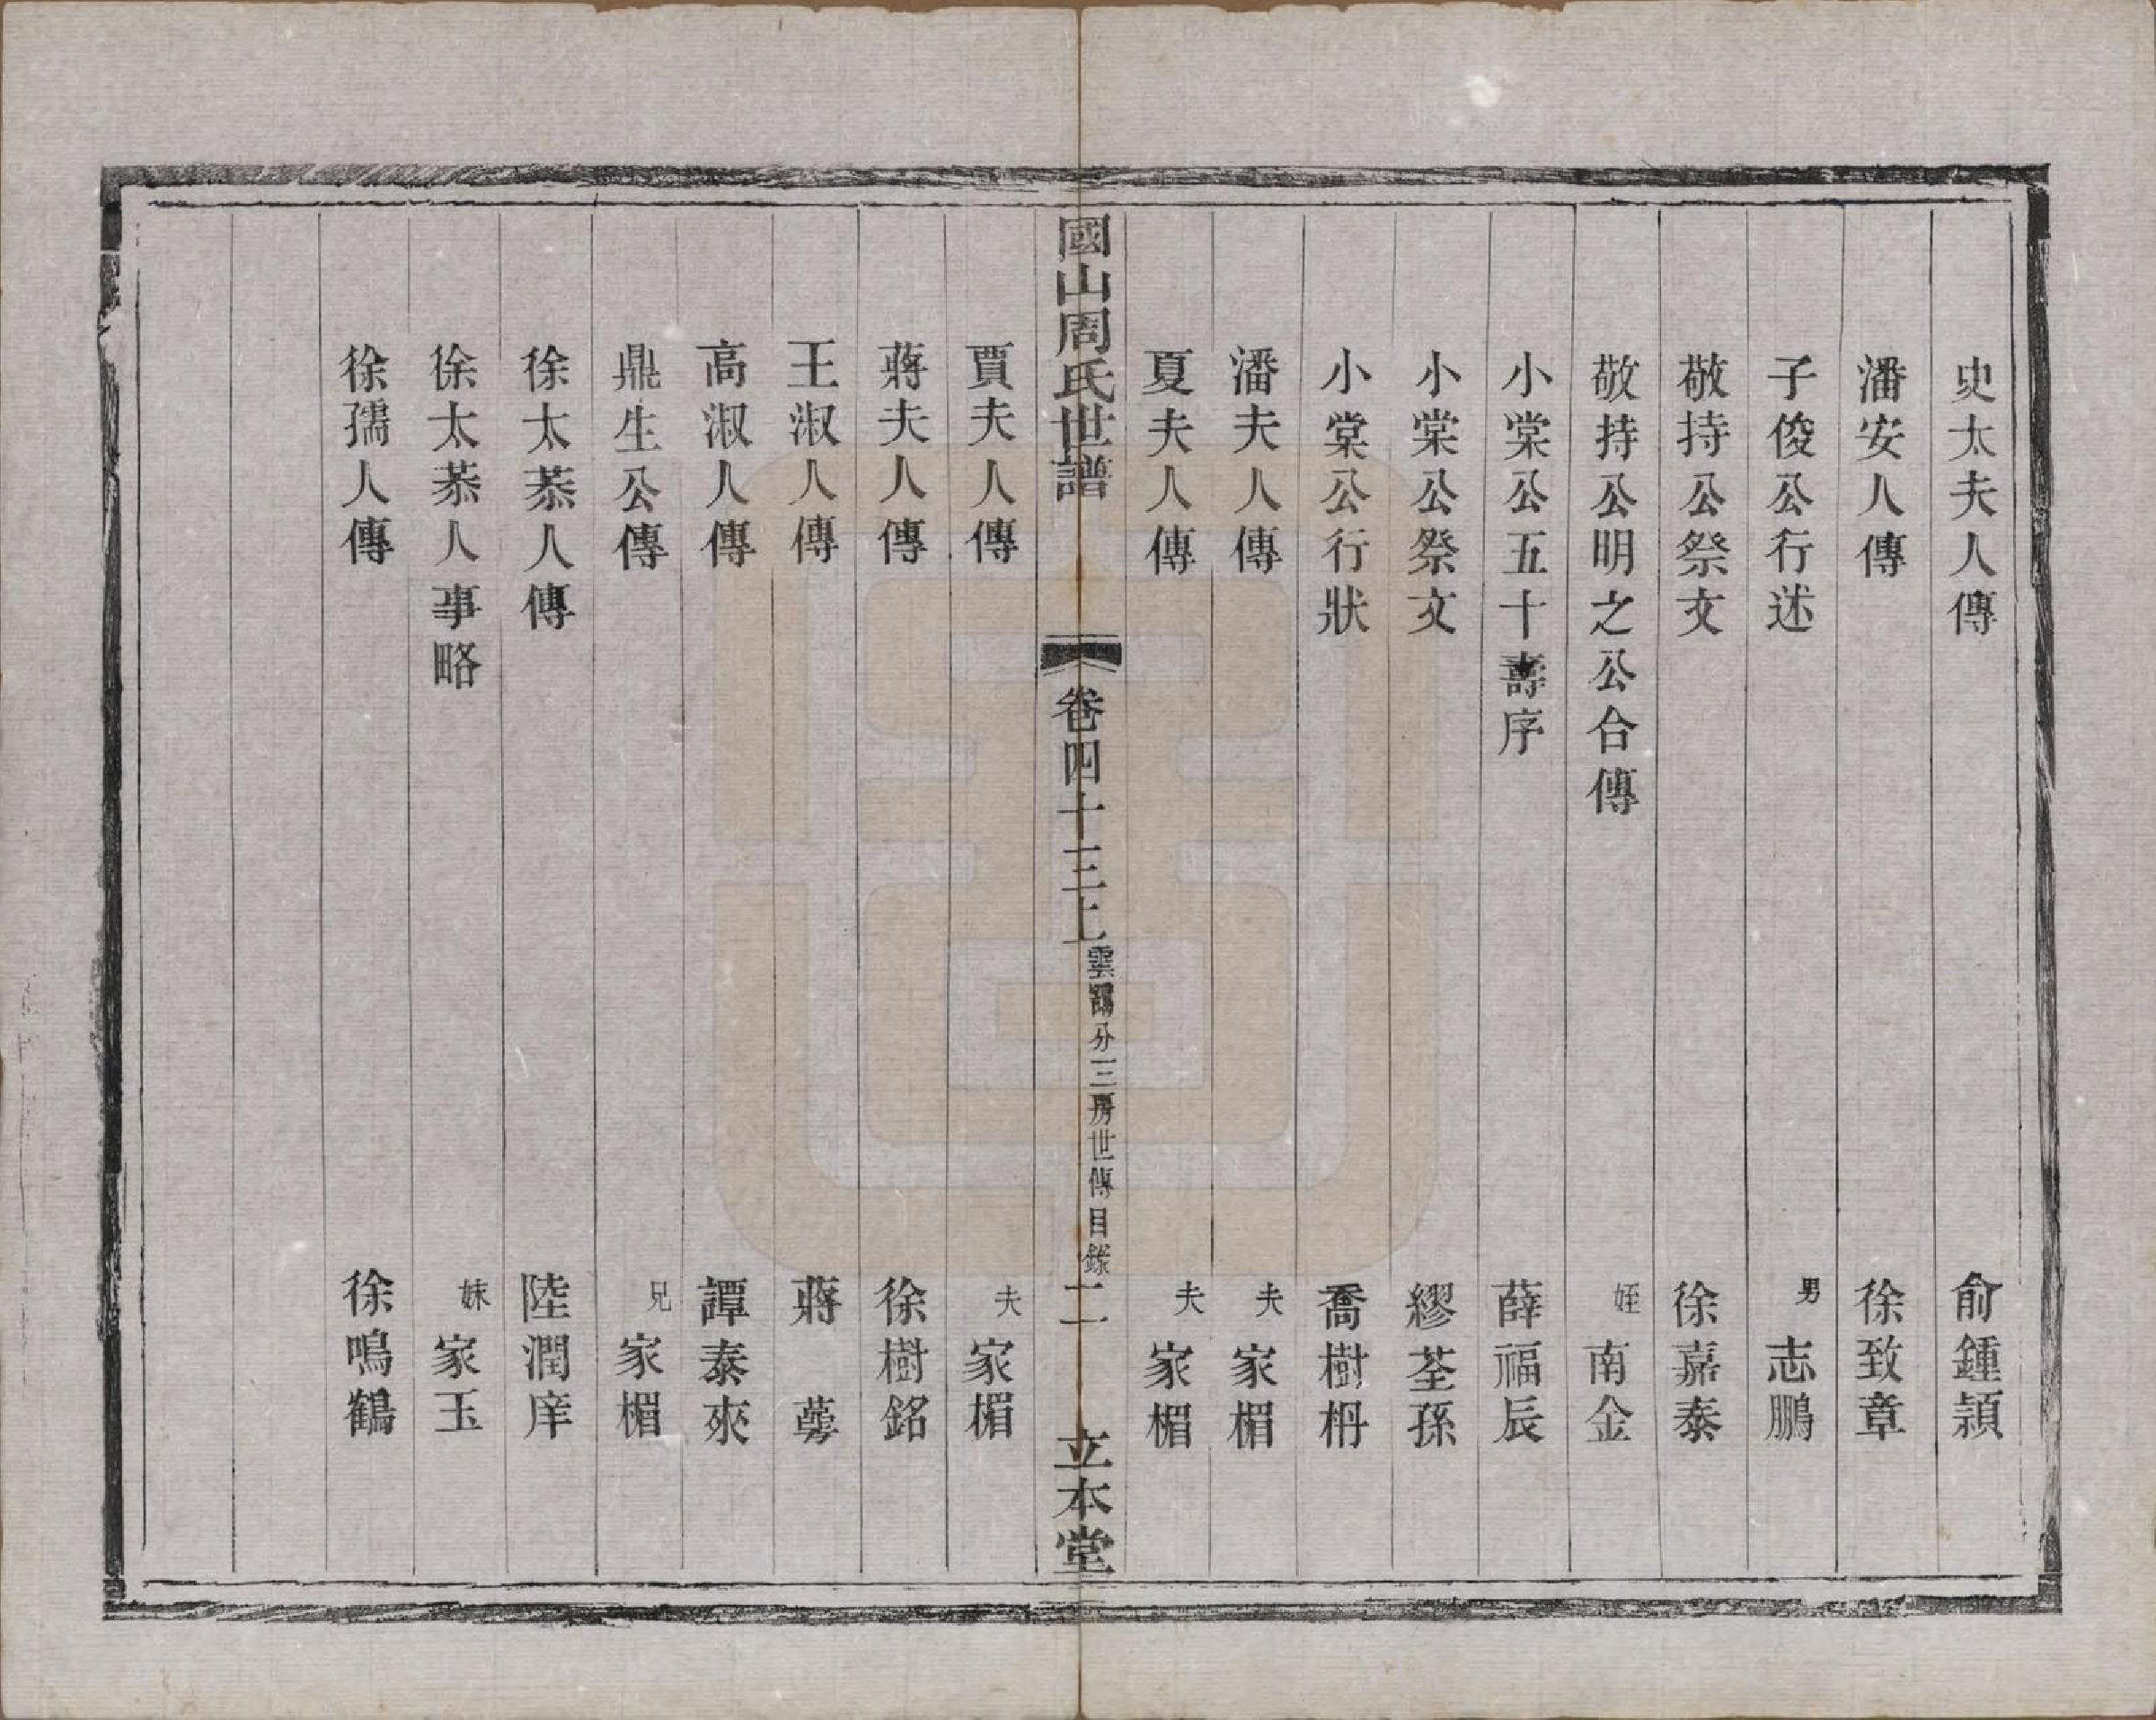 史太夫人傳　俞鍾穎
潘安人傳　徐致章
子俊公行述　男　志鵬
敬持公祭文　徐嘉泰
敬持公明之公合傳　姪　南金
小棠公五十壽序　薛福辰
小棠公祭文　繆荃孫
小棠公行狀　喬樹枏
潘夫人傳　夫　家楣
夏夫人傳　夫　家楣
國山周氏世譜　卷四十三上　雲陽分三房世傳目錄　二　立本堂
賈夫人傳　夫　家楣
蔣夫人傳　徐樹銘
王淑人傳　蔣　萼
高淑人傳　譚泰來
鼎生公傳　兄　家楣
徐太恭人傳　陸潤庠
徐太恭人事略　妹　家玉
徐孺人傳　徐鳴鶴